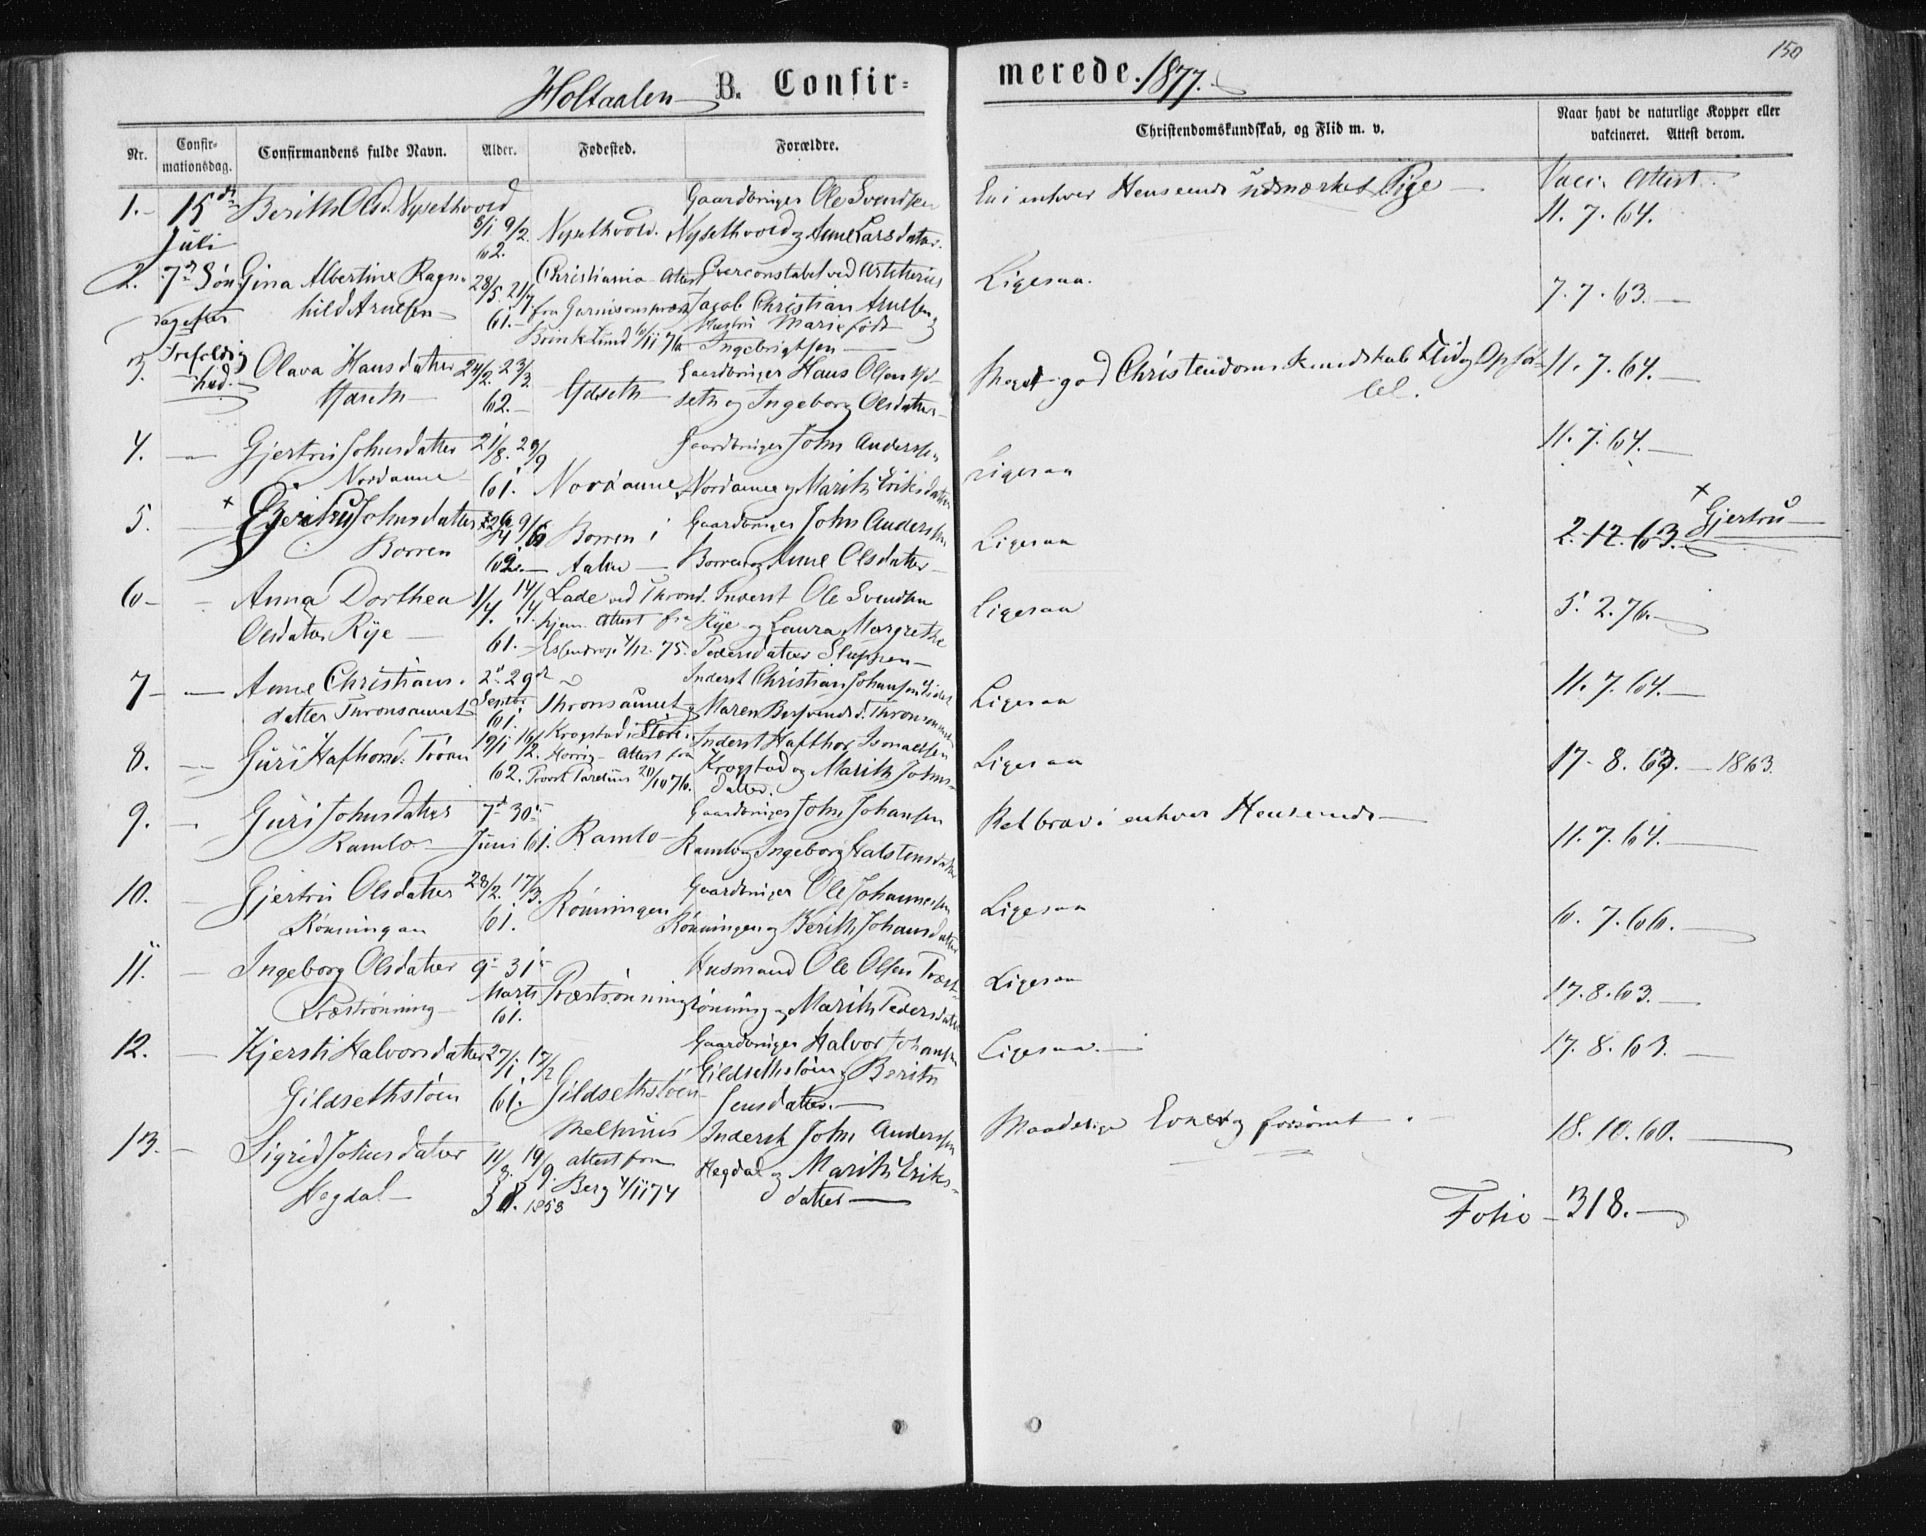 150
Holtaalen B. Confirmerede. 1877.
Nr. Confirmationsdag. Confirmandens fulde Navn. Alder. Fødested. Forældre. Christendomskundskab, og Flid m. v. Naar havt de naturlige Kopper eller vakcineret. Attest derom.
1. 15de Juli Berith Olsd. Nysethvold 8/1 9/2 62. Nysethvold. Gaardbruger Ole Svendsen Nysethvold og Anne Larsdatter. En i enhver Henseende udmærket Pige Vacc. Attest 11. 7. 64.
2. 7de Søndag efter Trefoldighed. Gina Albertine Ragnhild Arnesen 28/5. 21/7. 61. Christiania Attest fra Garnisonspræst Brinklund 6/11 76 Overconstabel ved Artilleriet Jacob Christian Arnesen og Hustru Marie født Ingebrigtsen Ligesaa. 7. 7. 63.
3. Olava Hansdatter Ydseth 24/2. 23/3. 62. Ydseth Gaardbruger Hans Olsen Ydseth og Ingeborg Olsdatter Meget god Christendoms Kundskab Flid og Opførsel. 11. 7. 64.
4. Gjertru Johnsdatter Nordaune 21/8. 29/9 61. Nordaune Gaardbruger John Anderssen Nordaune og Marith Eriksdatter Ligesaa 11. 7. 64.
5. × Gjertru Johnsdatter Borren 62. Borren i Aalen Gaardbruger John Anderssen Borren og Anne Olsdatter Ligesaa 2. 12. 63. × Gjertru
6 Anna Dorthea Olsdatter Rye 1/4. 14/4. 61. Lade ved Throndhjem. Attest fra 4/12. 75. Inderst Ole Svendsen Rye og Laura Margrethe Pedersdatter Sluppen Ligesaa 5. 2. 76.
7 Anne Christiansdatter Thronsaunet 2d 29d Septbr 61. Thronsaunet Inderst Christian Johansen og Maren Bersvendsd. Thronsaunet Ligesaa 11. 7. 64.
8. Guri Hafthorsd. Troen 19/1 16/2. 62. Krogstad i Støren Attest fra Provst Parelius 20/10 76. Inderst Hafthor Ismaelsen Krogstad og Marith Johnsdatter. Ligesaa 17. 8. 63. 1863.
9. Guri Johnsdatter Ramlo 7d 30d Juni 61. Ramlo Gaardbruger John Johansen Ramlo og Ingeborg Halstensdatter Ret brav i enhver Henseende 11. 7. 64.
10. Gjertru Olsdatter Rønningen 28/2. 17/3. 61. Rønningen Gaardbruger Ole Johannessen Rønningen og Berith Johansdatter Ligesaa 6. 7. 66.
11. Ingeborg Olsdatter Præstrønning 9. 31. Marts 61. Præstrønning Husmand Ole Olsen Præstrønning og Marith Pedersdatter Ligesaa 17. 8. 63.
12. Kjersti Halvorsdatter Gildsethstøen 27/1. 17/2 61. Gildsethstøen Gaardbruger Halvor Johansen Gildsethstøen og Berith Jensdatter. Ligesaa. 17. 8. 63.
13. Sigrid Johnsdatter Hegdal 11/8. 19/9. 1858 Melhuus attest fra Berg 4/11 74 Inderst John Anderssen Hegdal og Marith Eriksdatter Maadelige Evner og forsømt 18. 10. 60.
Folio 318.